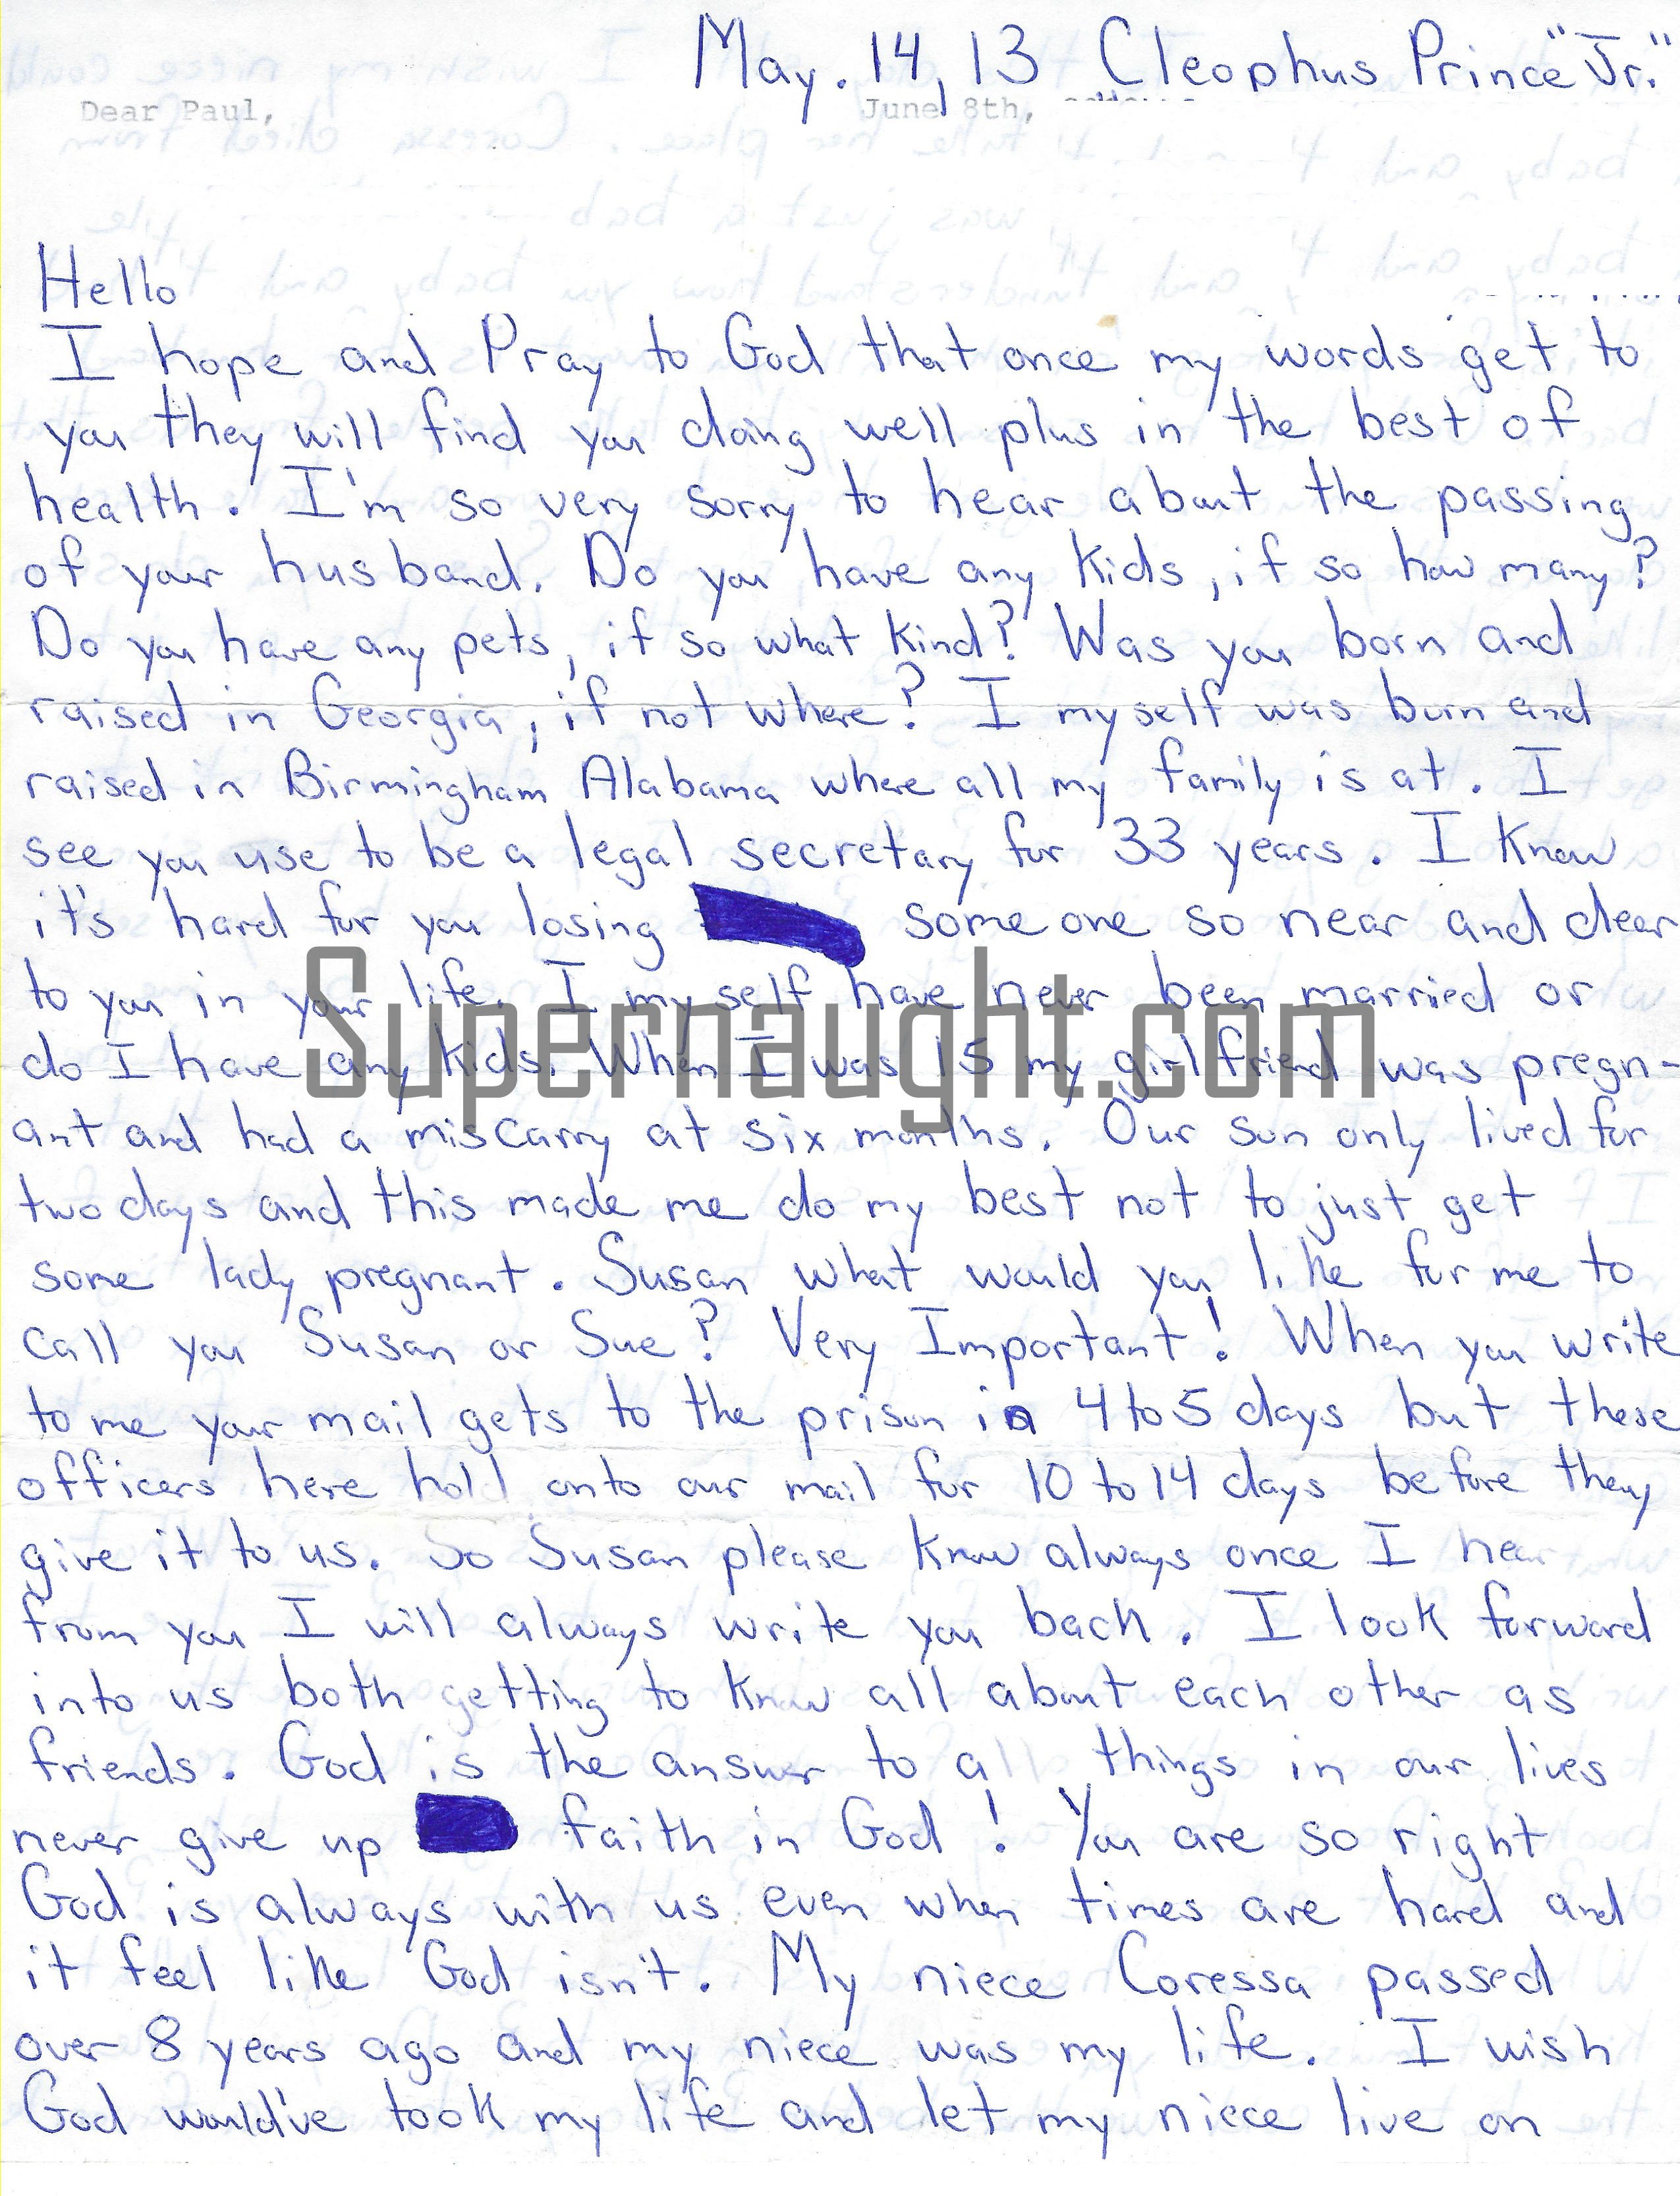 May. 14, 13 Cleophus Prince "Jr."
Dear Paul, June 8th,
Hello
I hope and Pray to God that once my words get to
you they will find you doing well plus in the best of
health. I'm so very sorry to hear about the passing
of your husband. Do you have any kids, if so how many?
Do you have any pets, if so what kind? Was you born and
raised in Georgia, if not where? I myself was born and
raised in Birmingham Alabama where all my family is at. I
see you use to be a legal secretary for 33 years. I know
it's hard for you losing some one so near and dear
to you in your life. I my self have never been married or
do I have any kids. When I was 15 my girl friend was pregn-
ant and had a miscarry at six months. Our son only lived for
two days and this made me do my best not to just get
some lady pregnant. Susan what would you like for me to
call you Susan or Sue? Very Important! When you write
to me your mail gets to the prison in 4 to 5 days but these
officers here hold onto our mail for 10 to 14 days before they
give it to us. So Susan please know always once I hear
from you I will always write you back. I look forward
into us both getting to know all about each other as
friends. God is the answer to all things in our lives
never give up faith in God! You are so right
God is always with us even when times are hard and
it feel like God isn't. My niece Coressa passed
over 8 years ago and my niece was my life. I wish
God would've took my life and let my niece live on
Supernaught.com